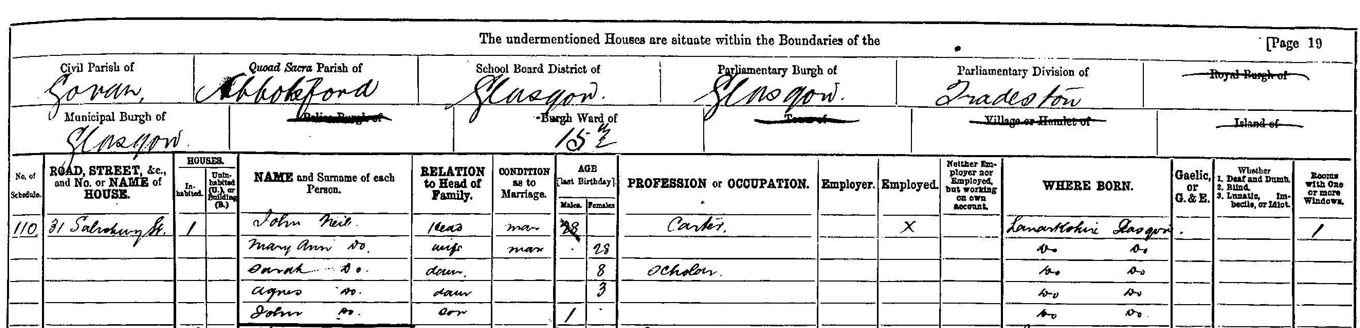 The undermentioned Houses are situate within the Boundaries of the [Page 19
Civil Parish of Quoad Sacra Parish of School Board District of Parliamentary Burgh of Parliamentary Division of Royal Burgh of
Govan, Abbotsford Glasgow. Glasgow. Tradeston
Municipal Burgh of Police Burgh of Burgh Ward of Town of Village or Hamlet of Island of
Glasgow. 15
No. of Schedule. ROAD, STREET, &c., and No. or NAME of HOUSE. HOUSES. Inhabited. Uninhabited (U.), or Building (B.) NAME and Surname of each Person. RELATION to Head of Family. CONDITION as to Marriage. AGE [last Birthday]. Males. Females PROFESSION or OCCUPATION. Employer. Employed. Neither Employer nor Employed, but working on own account. WHERE BORN. Gaelic, or G. & E. Whether 1. Deaf and Dumb. 2. Blind. 3. Lunatic, Imbecile, or Idiot. Rooms with One or more Windows.
110 31 Salisbury St. 1 John Neil Head mar 28 Carter. X Lanarkshire Glasgow. 1
Mary Ann Do. wife mar 28 Do Do
Sarah Do. daur. 8 Scholar. Do Do
Agnes Do. daur 3 Do Do
John Do. son 1 Do Do.